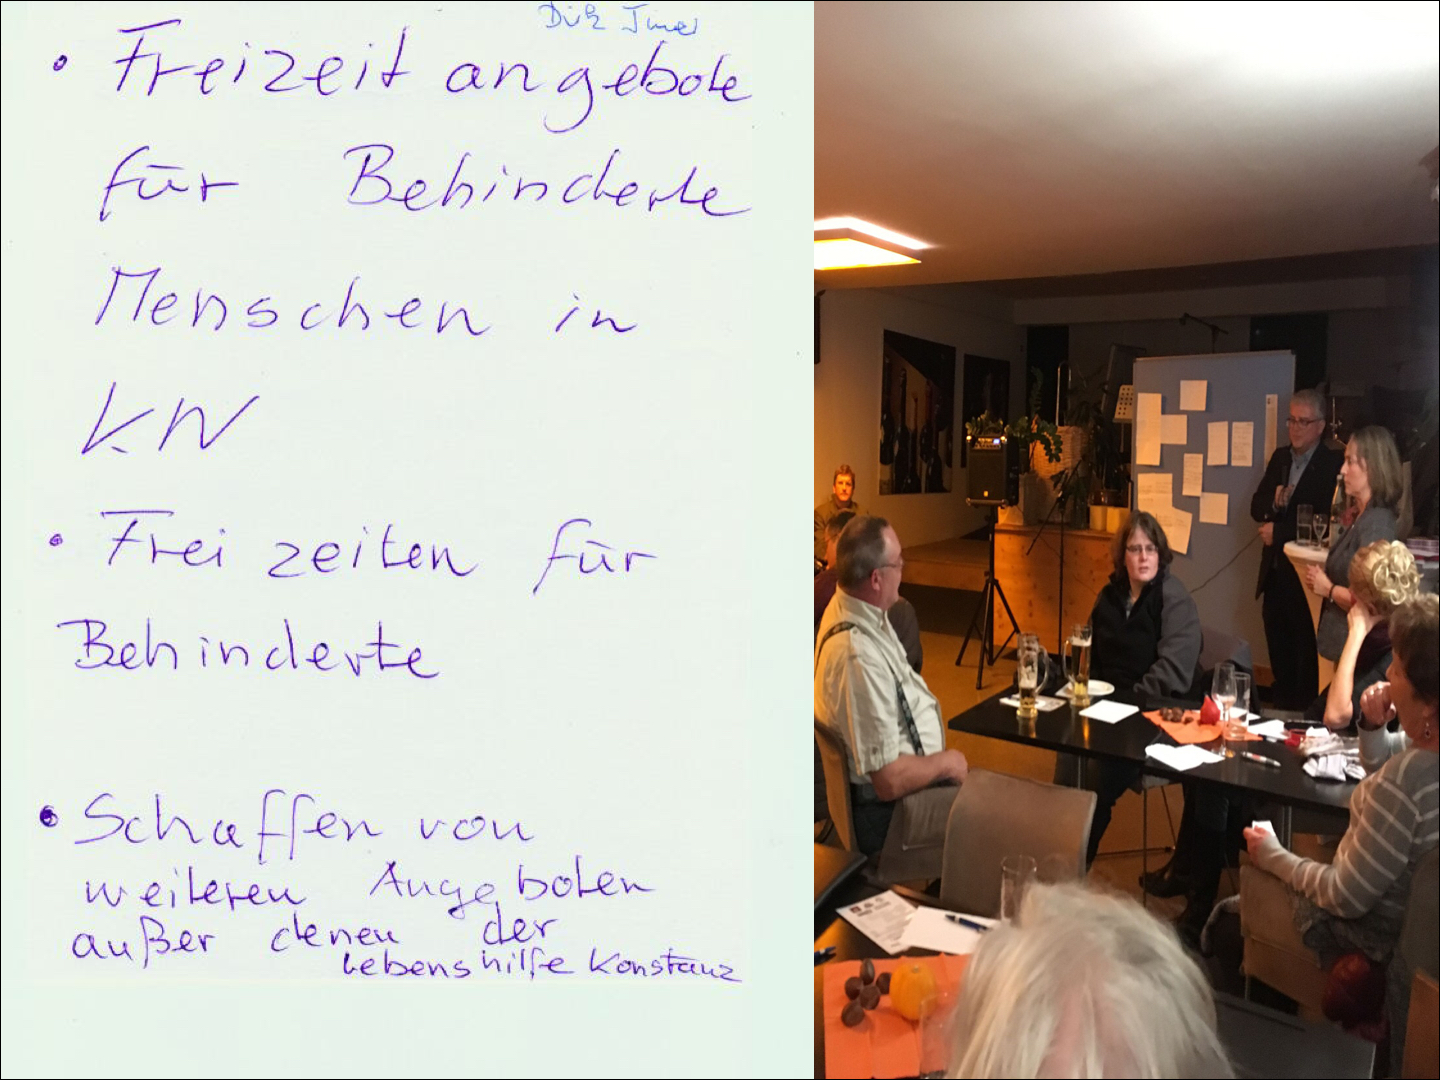 Dirk
• Freizeit angebote
für Behinderte
Menschen in
KN
• Frei zeiten für
Behinderte
• Schaffen von
weiteren Angeboten
außer denen der
Lebenshilfe Konstanz